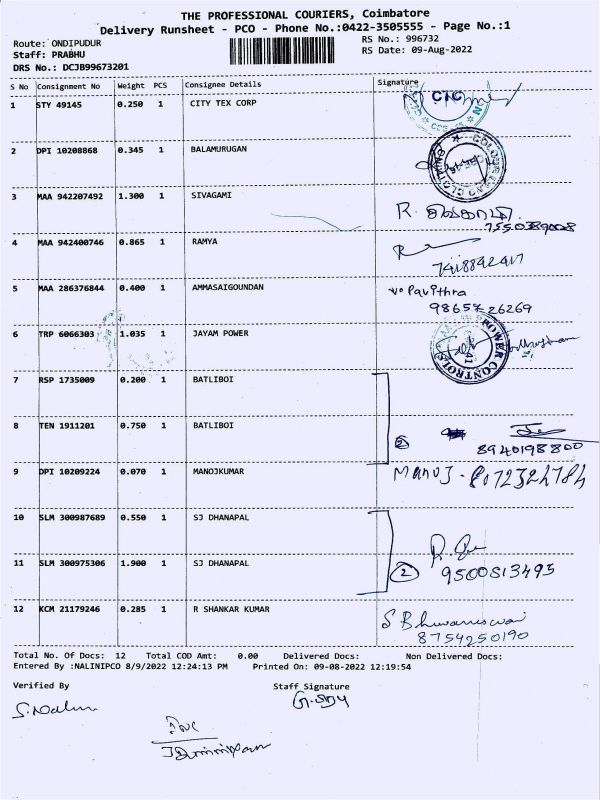 THE PROFESSIONAL COURIERS, Coimbatore
Delivery Runsheet - PCO - Phone No.:0422-3505555 - Page No.:1
Route: ONDIPUDUR RS No.: 996732
Staff: PRABHU RS Date: 09-Aug-2022
DRS No.: DCJB99673201
S No Consignment No Weight PCS Consignee Details Signature
1 STY 49145 0.250 1 CITY TEX CORP
CTC
2 DPI 10208868 0.345 1 BALAMURUGAN
3 MAA 942207492 1.300 1 SIVAGAMI
R. சிவகாமி.
7550389008
4 MAA 942400746 0.865 1 RAMYA
7418842417
5 MAA 286376844 0.400 1 AMMASAIGOUNDAN
Pavithra
9865726269
6 TRP 6066303 1.035 1 JAYAM POWER
POWER CONTROLS
7 RSP 1735009 0.200 1 BATLIBOI
8 TEN 1911201 0.750 1 BATLIBOI
② 8940198800
9 DPI 10209224 0.070 1 MANOJKUMAR
Manoj - 8072324784
10 SLM 300987689 0.550 1 SJ DHANAPAL
11 SLM 300975306 1.900 1 SJ DHANAPAL
② 9500813493
12 KCM 21179246 0.285 1 R SHANKAR KUMAR
S Bhuvaneswari
8754250190
Total No. Of Docs: 12 Total COD Amt: 0.00 Delivered Docs: Non Delivered Docs:
Entered By :NALINIPCO 8/9/2022 12:24:13 PM Printed On: 09-08-2022 12:19:54
Verified By Staff Signature
S. Nalini